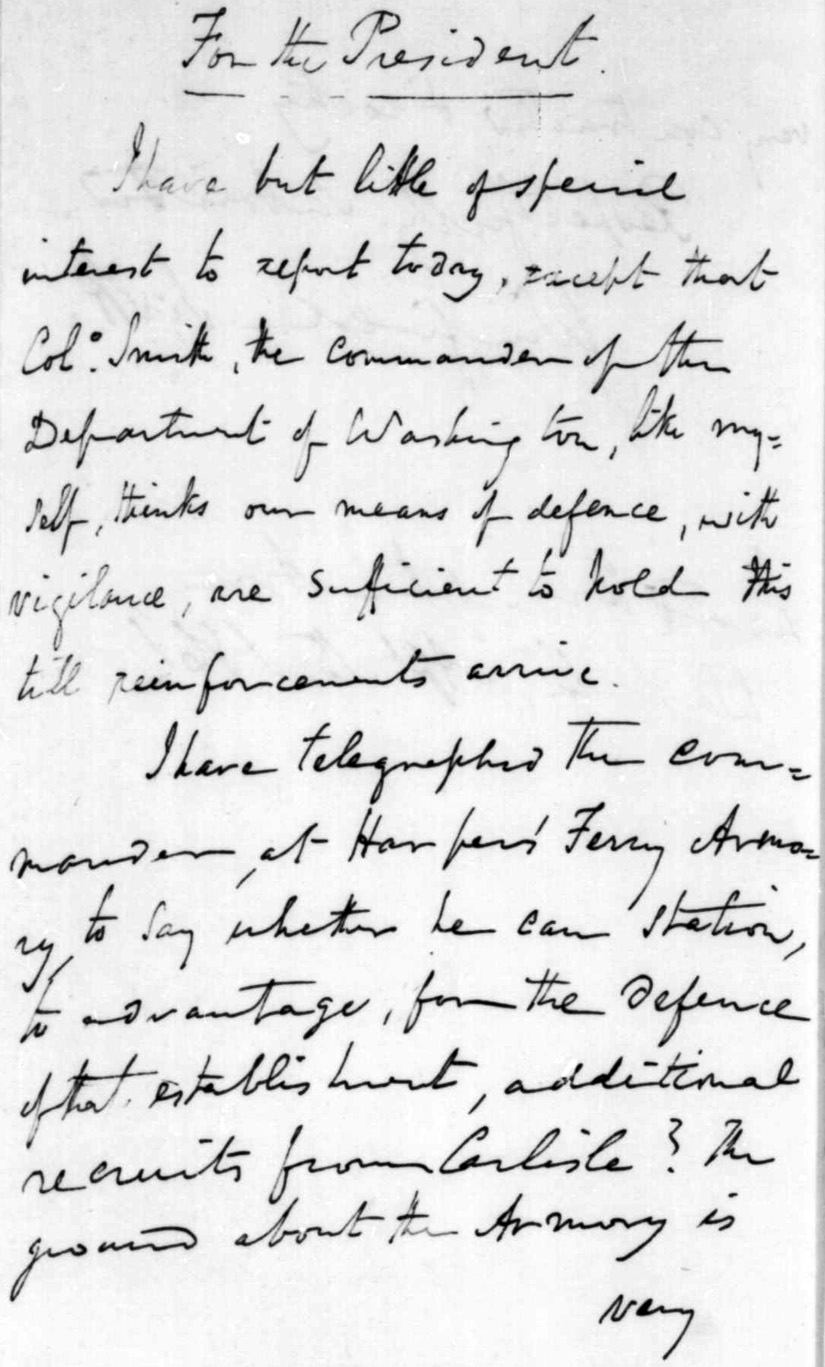 For the President.
I have but little of special
interest to report today, except that
Col.º Smith, the commander of the
Department of Washington, like my=
self, thinks our means of defence, with
vigilance, are sufficient to hold this
till reinforcements arrive.
I have telegraphed the com=
mander, at Harpers' Ferry Armo=
ry, to say whether he can station,
to advantage, for the defence
of that establishment, additional
recruits from Carlisle? The
ground about the Armory is
very